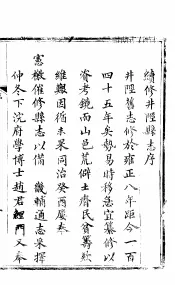 續修井陘縣志序
井陘舊志修於雍正八年距今一百
四十五年矣勢易時移急宜纂修以
資考鏡而山邑荒僻土瘠民貧籌欵
維艱因循未果同治癸酉屢奉
憲檄催修縣志以備 畿輔通志采擇
仲冬下浣府學博士趙君 門又奉